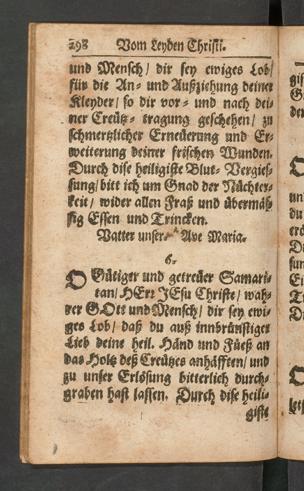 298 Vom Leyden Christi.
und Mensch / dir sey ewiges Lob /
für die An- und Außziehung deiner
Kleyder / so dir vor- und nach dei-
ner Creütz-tragung geschehen / zu
schmertzlicher Erneüerung und Er-
weiterung deiner frischen Wunden.
Durch dise heiligiste Blut-Vergies-
sung / bitt ich um Gnad der Nüchter-
keit / wider allen Fraß und übermäs-
sig Essen und Trincken.
Vatter unser. Ave Maria.
6.
O Gütiger und getreüer Samari-
tan / HErr JEsu Christe / wah-
rer GOtt und Mensch / dir sey ewi-
ges Lob / daß du auß innbrünstiger
Lieb deine heil. Händ und Füeß an
das Holtz deß Creützes anhäfften / und
zu unser Erlösung bitterlich durch-
graben hast lassen. Durch dise heili-
giste